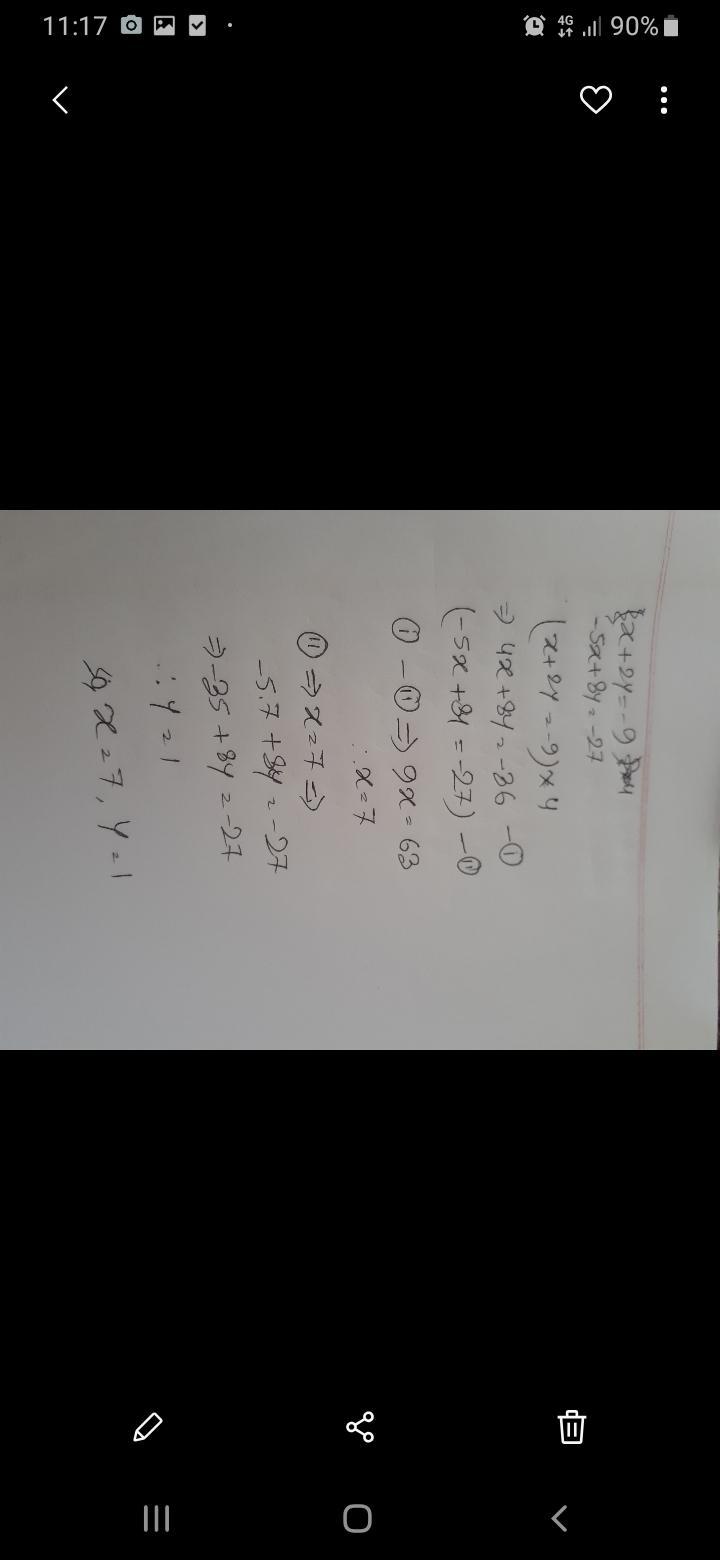 11:17
4G
90%
x+2y=-9
-5x+8y=-27
(x+2y=-9)×4
⇒ 4x+8y=-36 -①
(-5x+8y=-27) -⑪
① - ⑪ ⇒ 9x=63
∴x=7
⑪ ⇒ x=7 ⇒
-5.7+8y=-27
⇒ -35+8y=-27
∴ y=1
x=7, y=1